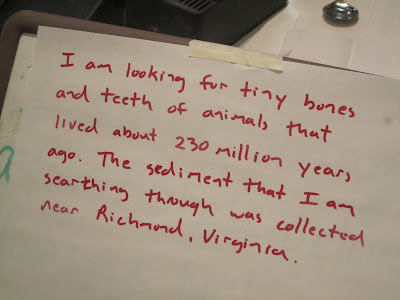 I am looking for tiny bones
and teeth of animals that
lived about 230 million years
ago. The sediment that I am
searthing through was collected
near Richmond, Virginia.